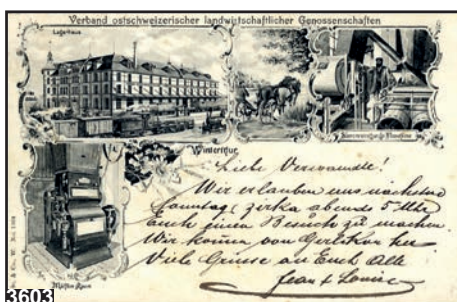 Verband ostschweizerischer landwirtschaftlicher Genossenschaften
Lagerhaus
Winterthur
Liebe Verwandte!
Wir erlauben uns nächsten
Sonntag (zirka abends 5 Uhr)
Euch einen Besuch zu machen.
Wir kommen von her
Viele Grüsse an Euch Alle
Jean & Louise
3603